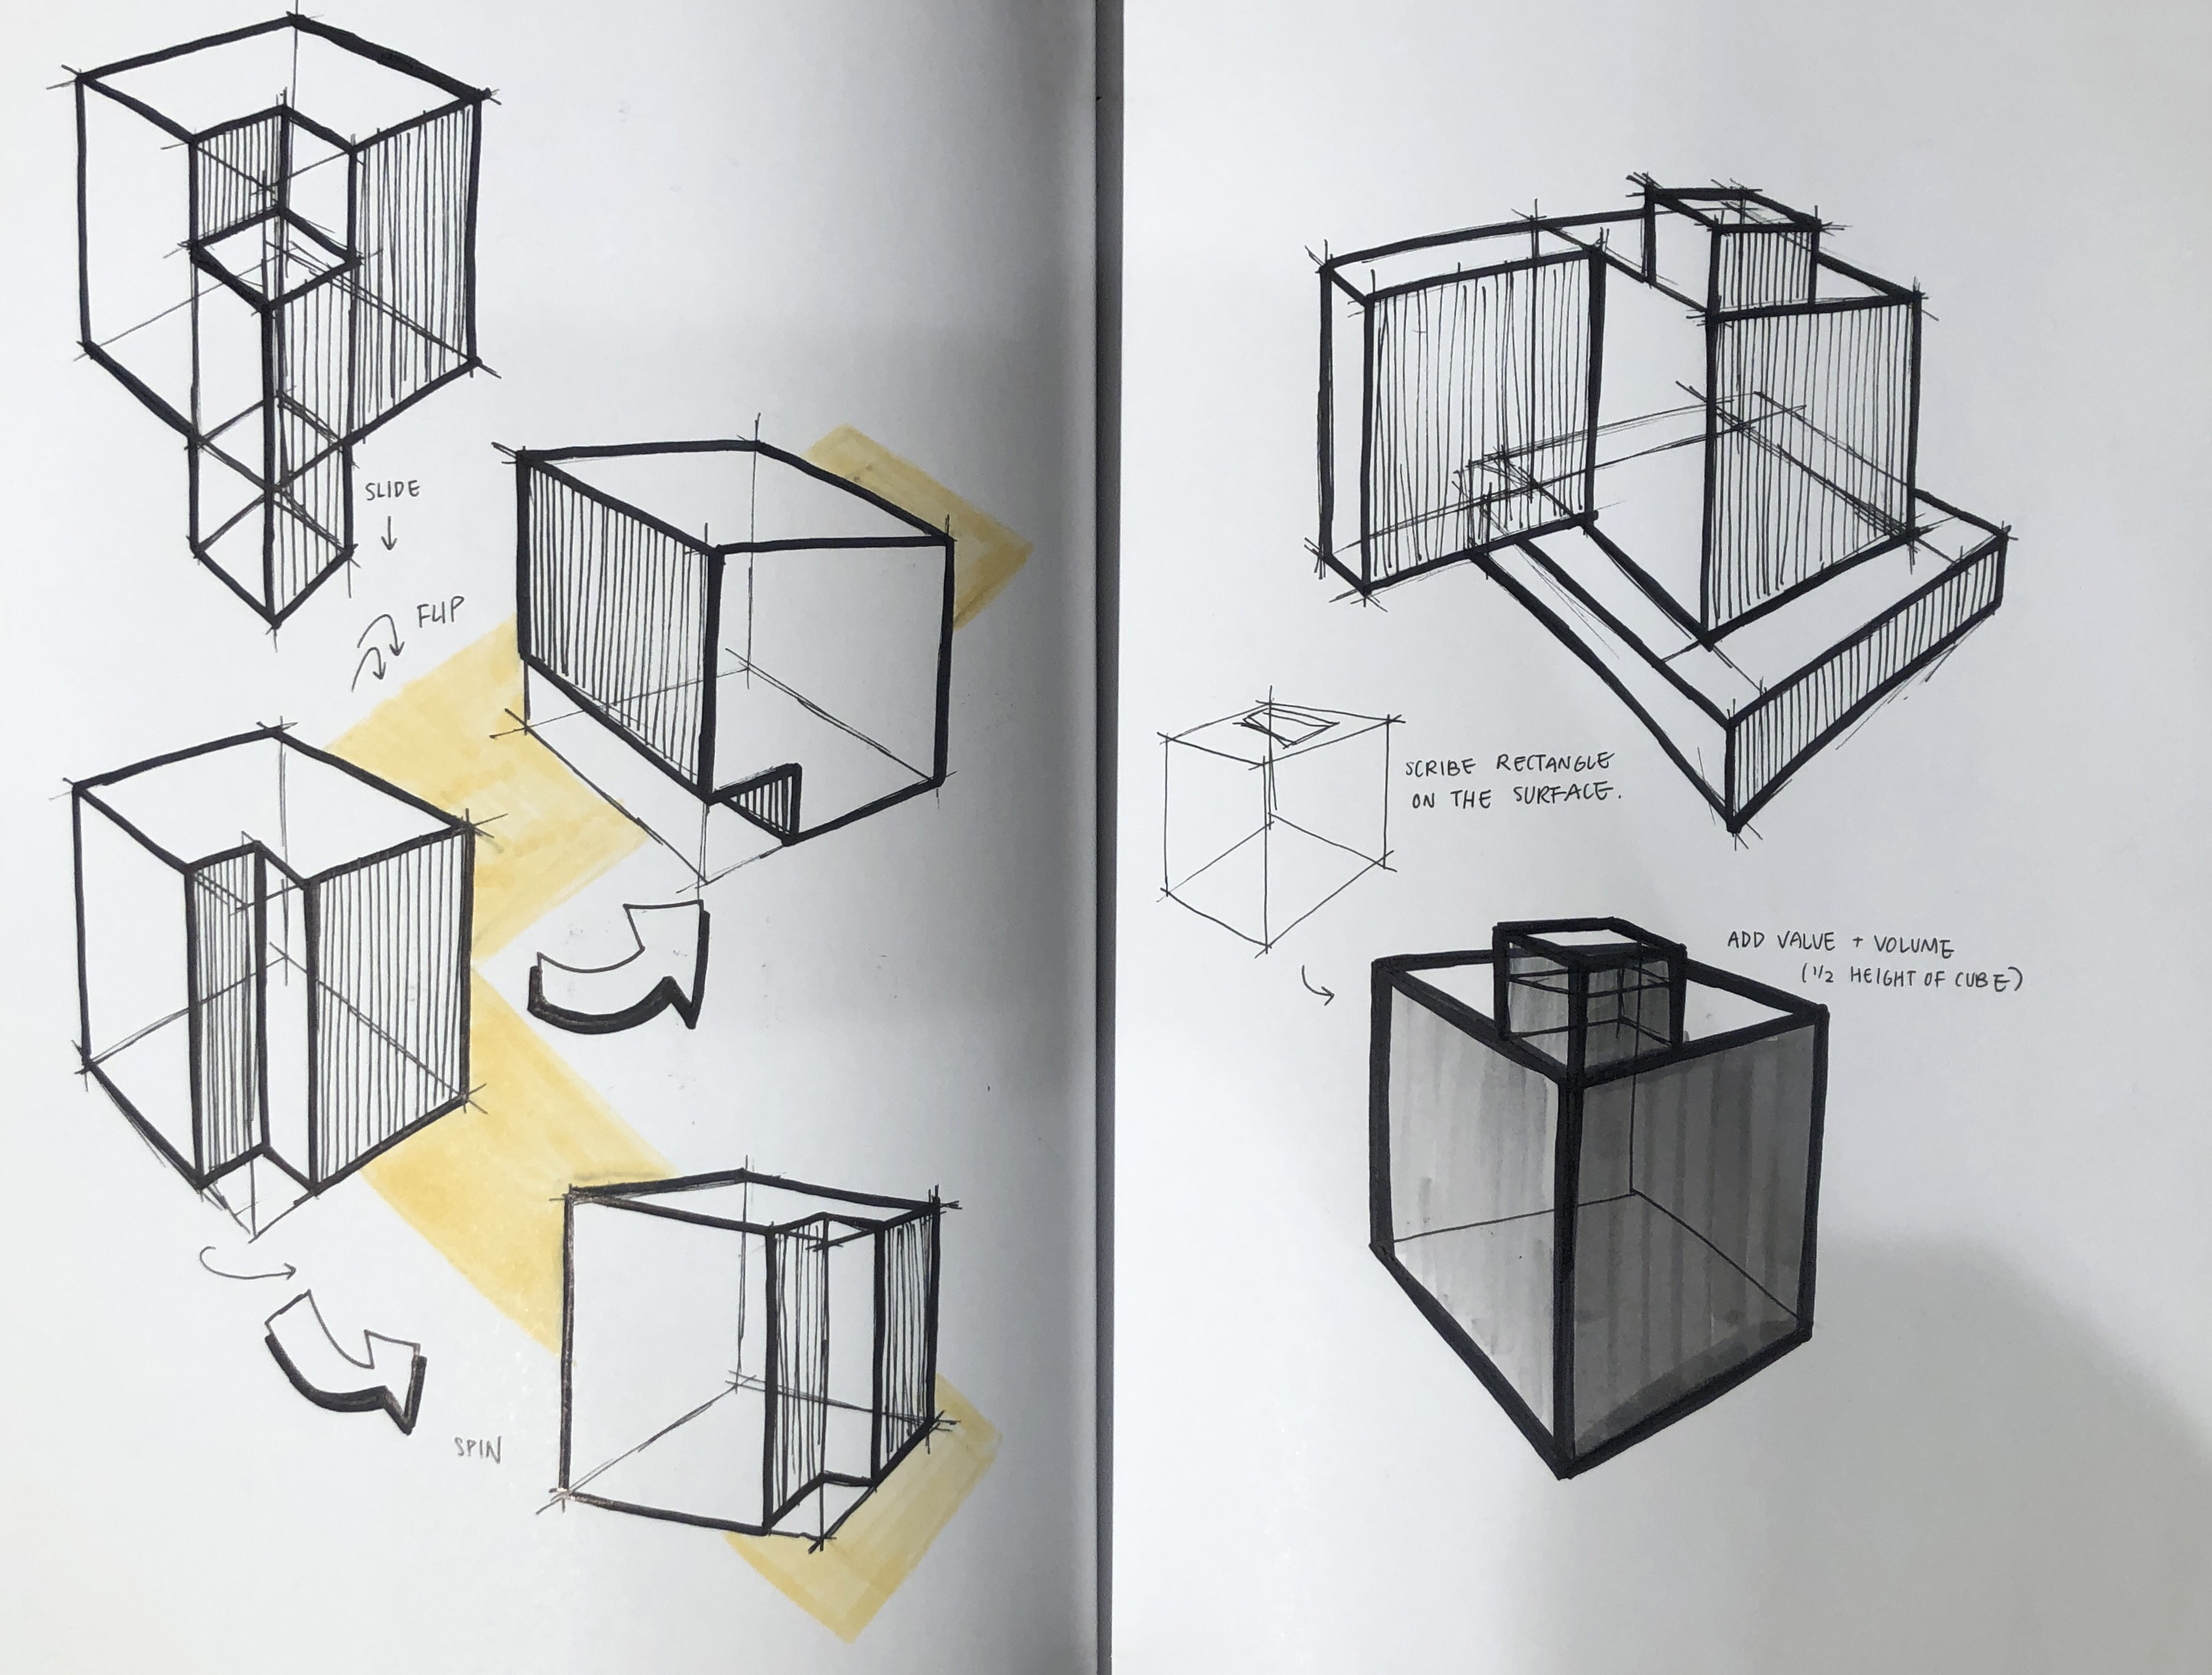 SLIDE
FLIP
SPIN
SCRIBE RECTANGLE
ON THE SURFACE.
ADD VALUE + VOLUME
(1/2 HEIGHT OF CUBE)